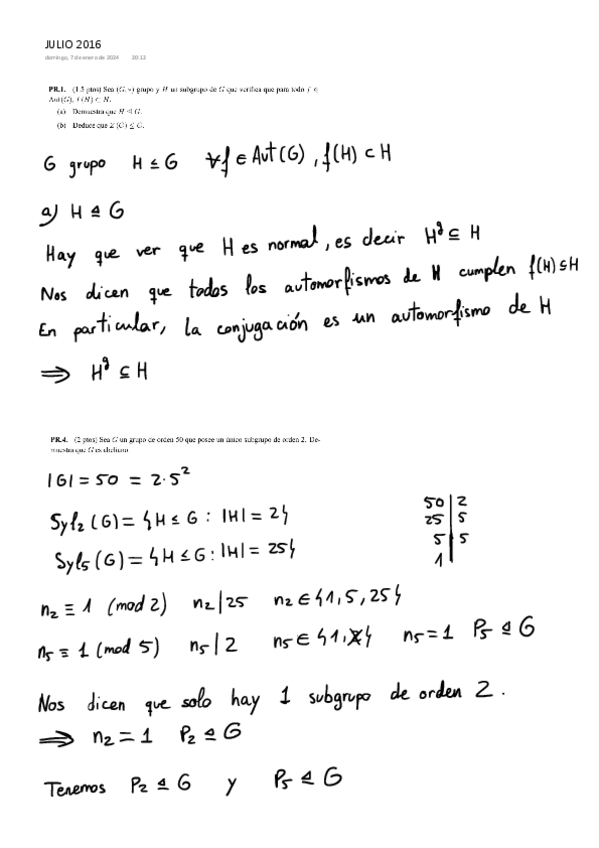 JULIO 2016
domingo, 7 de enero de 2024 20:13
PR.1. (1.5 ptos) Sea (G, ·) grupo y H un subgrupo de G que verifica que para todo f ∈
Aut(G), f(H) ⊂ H.
(a) Demuestra que H ⊴ G.
(b) Deduce que Z(G) ≤ G.
G grupo H ≤ G ∀f ∈ Aut(G), f(H) ⊂ H
a) H ⊴ G
Hay que ver que H es normal, es decir H^g ⊆ H
Nos dicen que todos los automorfismos de H cumplen f(H) ⊆ H
En particular, la conjugación es un automorfismo de H
⟹ H^g ⊆ H
PR.4. (2 ptos) Sea G un grupo de orden 50 que posee un único subgrupo de orden 2. De-
muestra que G es abeliano
|G| = 50 = 2·5²
50 | 2
25 | 5
5 | 5
1
Syl₂(G) = {H ≤ G : |H| = 2}
Syl₅(G) = {H ≤ G : |H| = 25}
n₂ ≡ 1 (mod 2) n₂ | 25 n₂ ∈ {1, 5, 25}
n₅ ≡ 1 (mod 5) n₅ | 2 n₅ ∈ {1, 2} n₅ = 1 P₅ ⊴ G
Nos dicen que solo hay 1 subgrupo de orden 2.
⟹ n₂ = 1 P₂ ⊴ G
Tenemos P₂ ⊴ G y P₅ ⊴ G